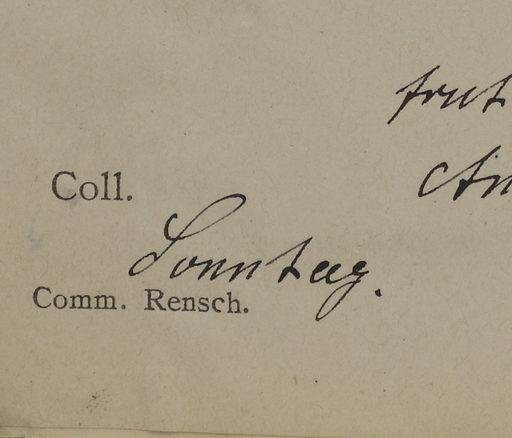 fruct
Coll.
Sonntag.
Comm. Rensch.